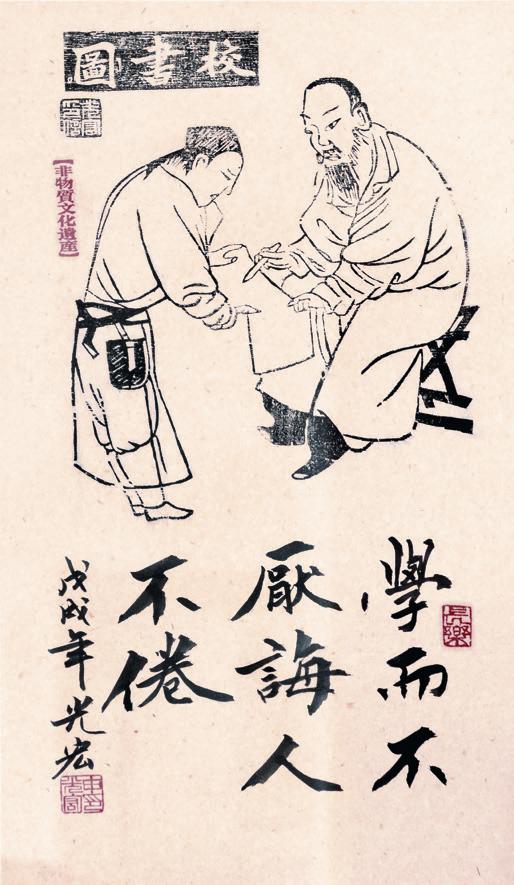 校書圖
【非物質文化遺産】
學而不
厭誨人
不倦
戊戌年光宏